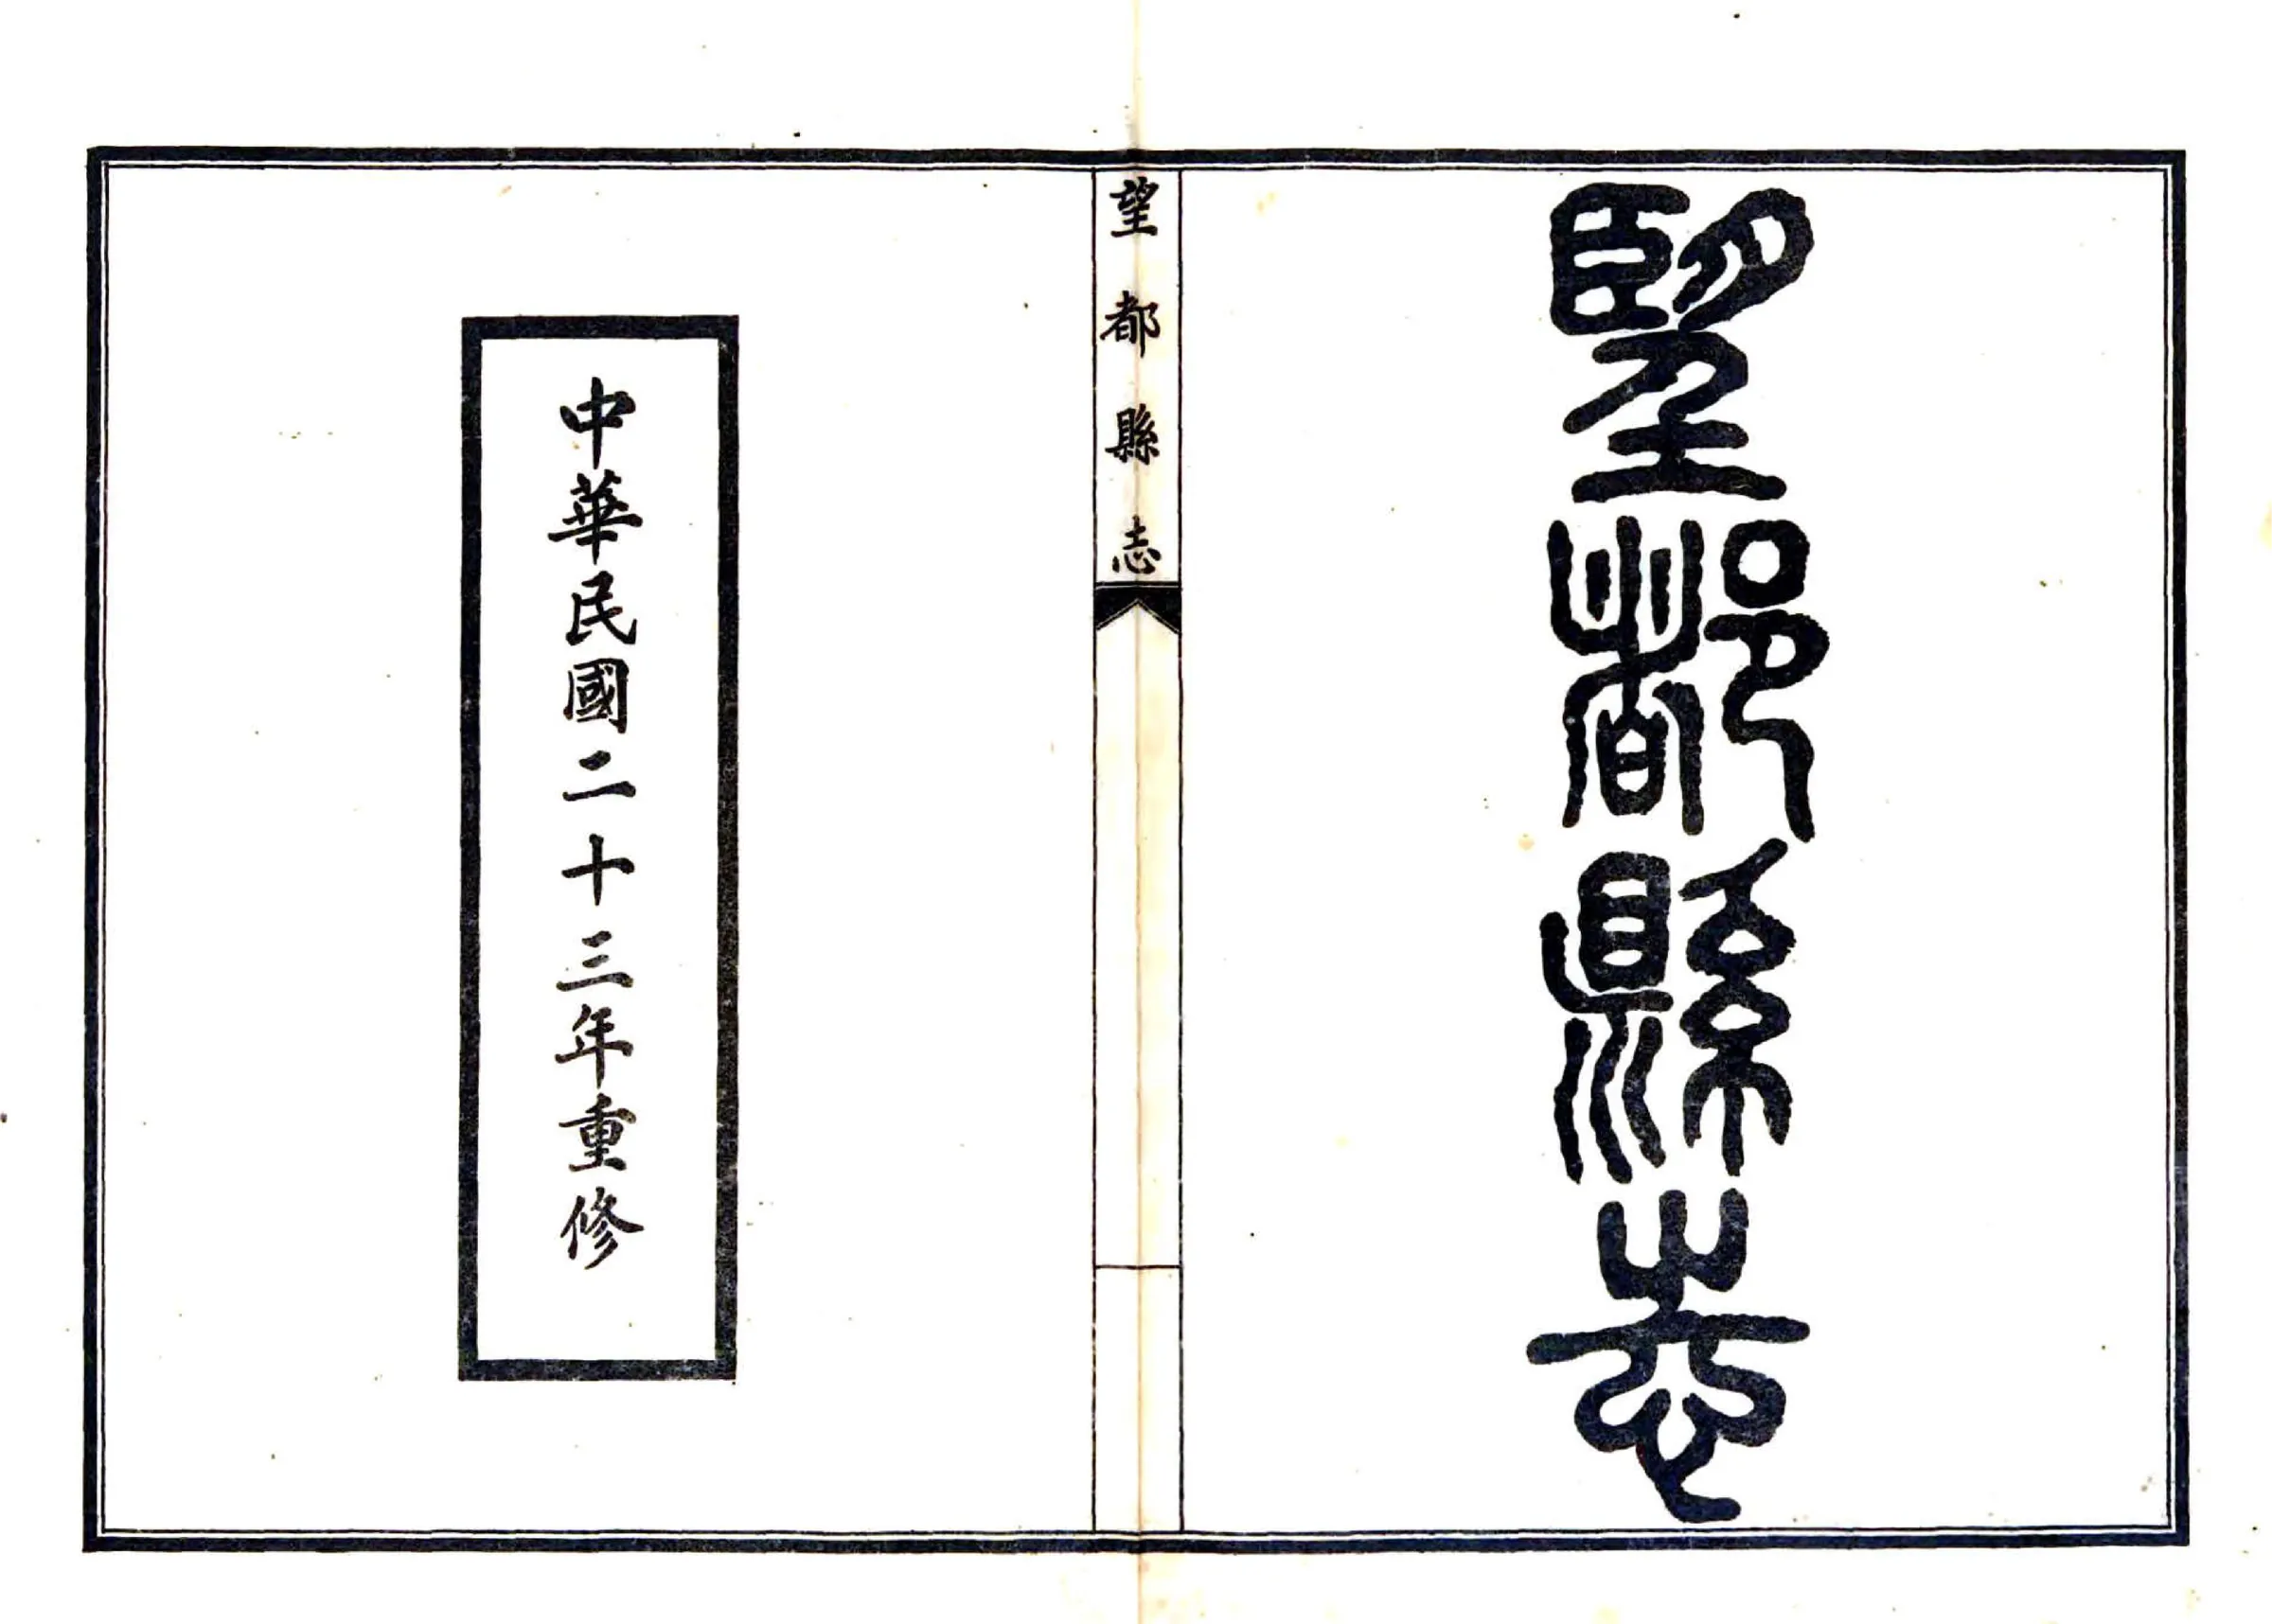 望都縣志
望都縣志
中華民國二十三年重修